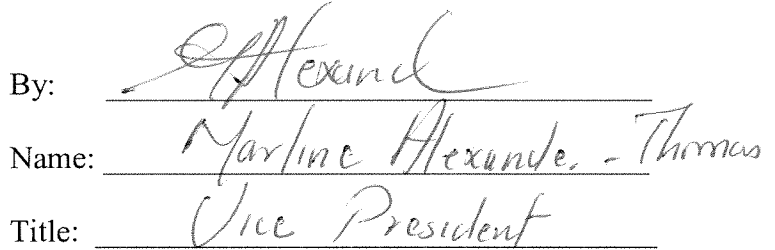 By: Alexand
Name: Marline Alexander - Thomas
Title: Vice President